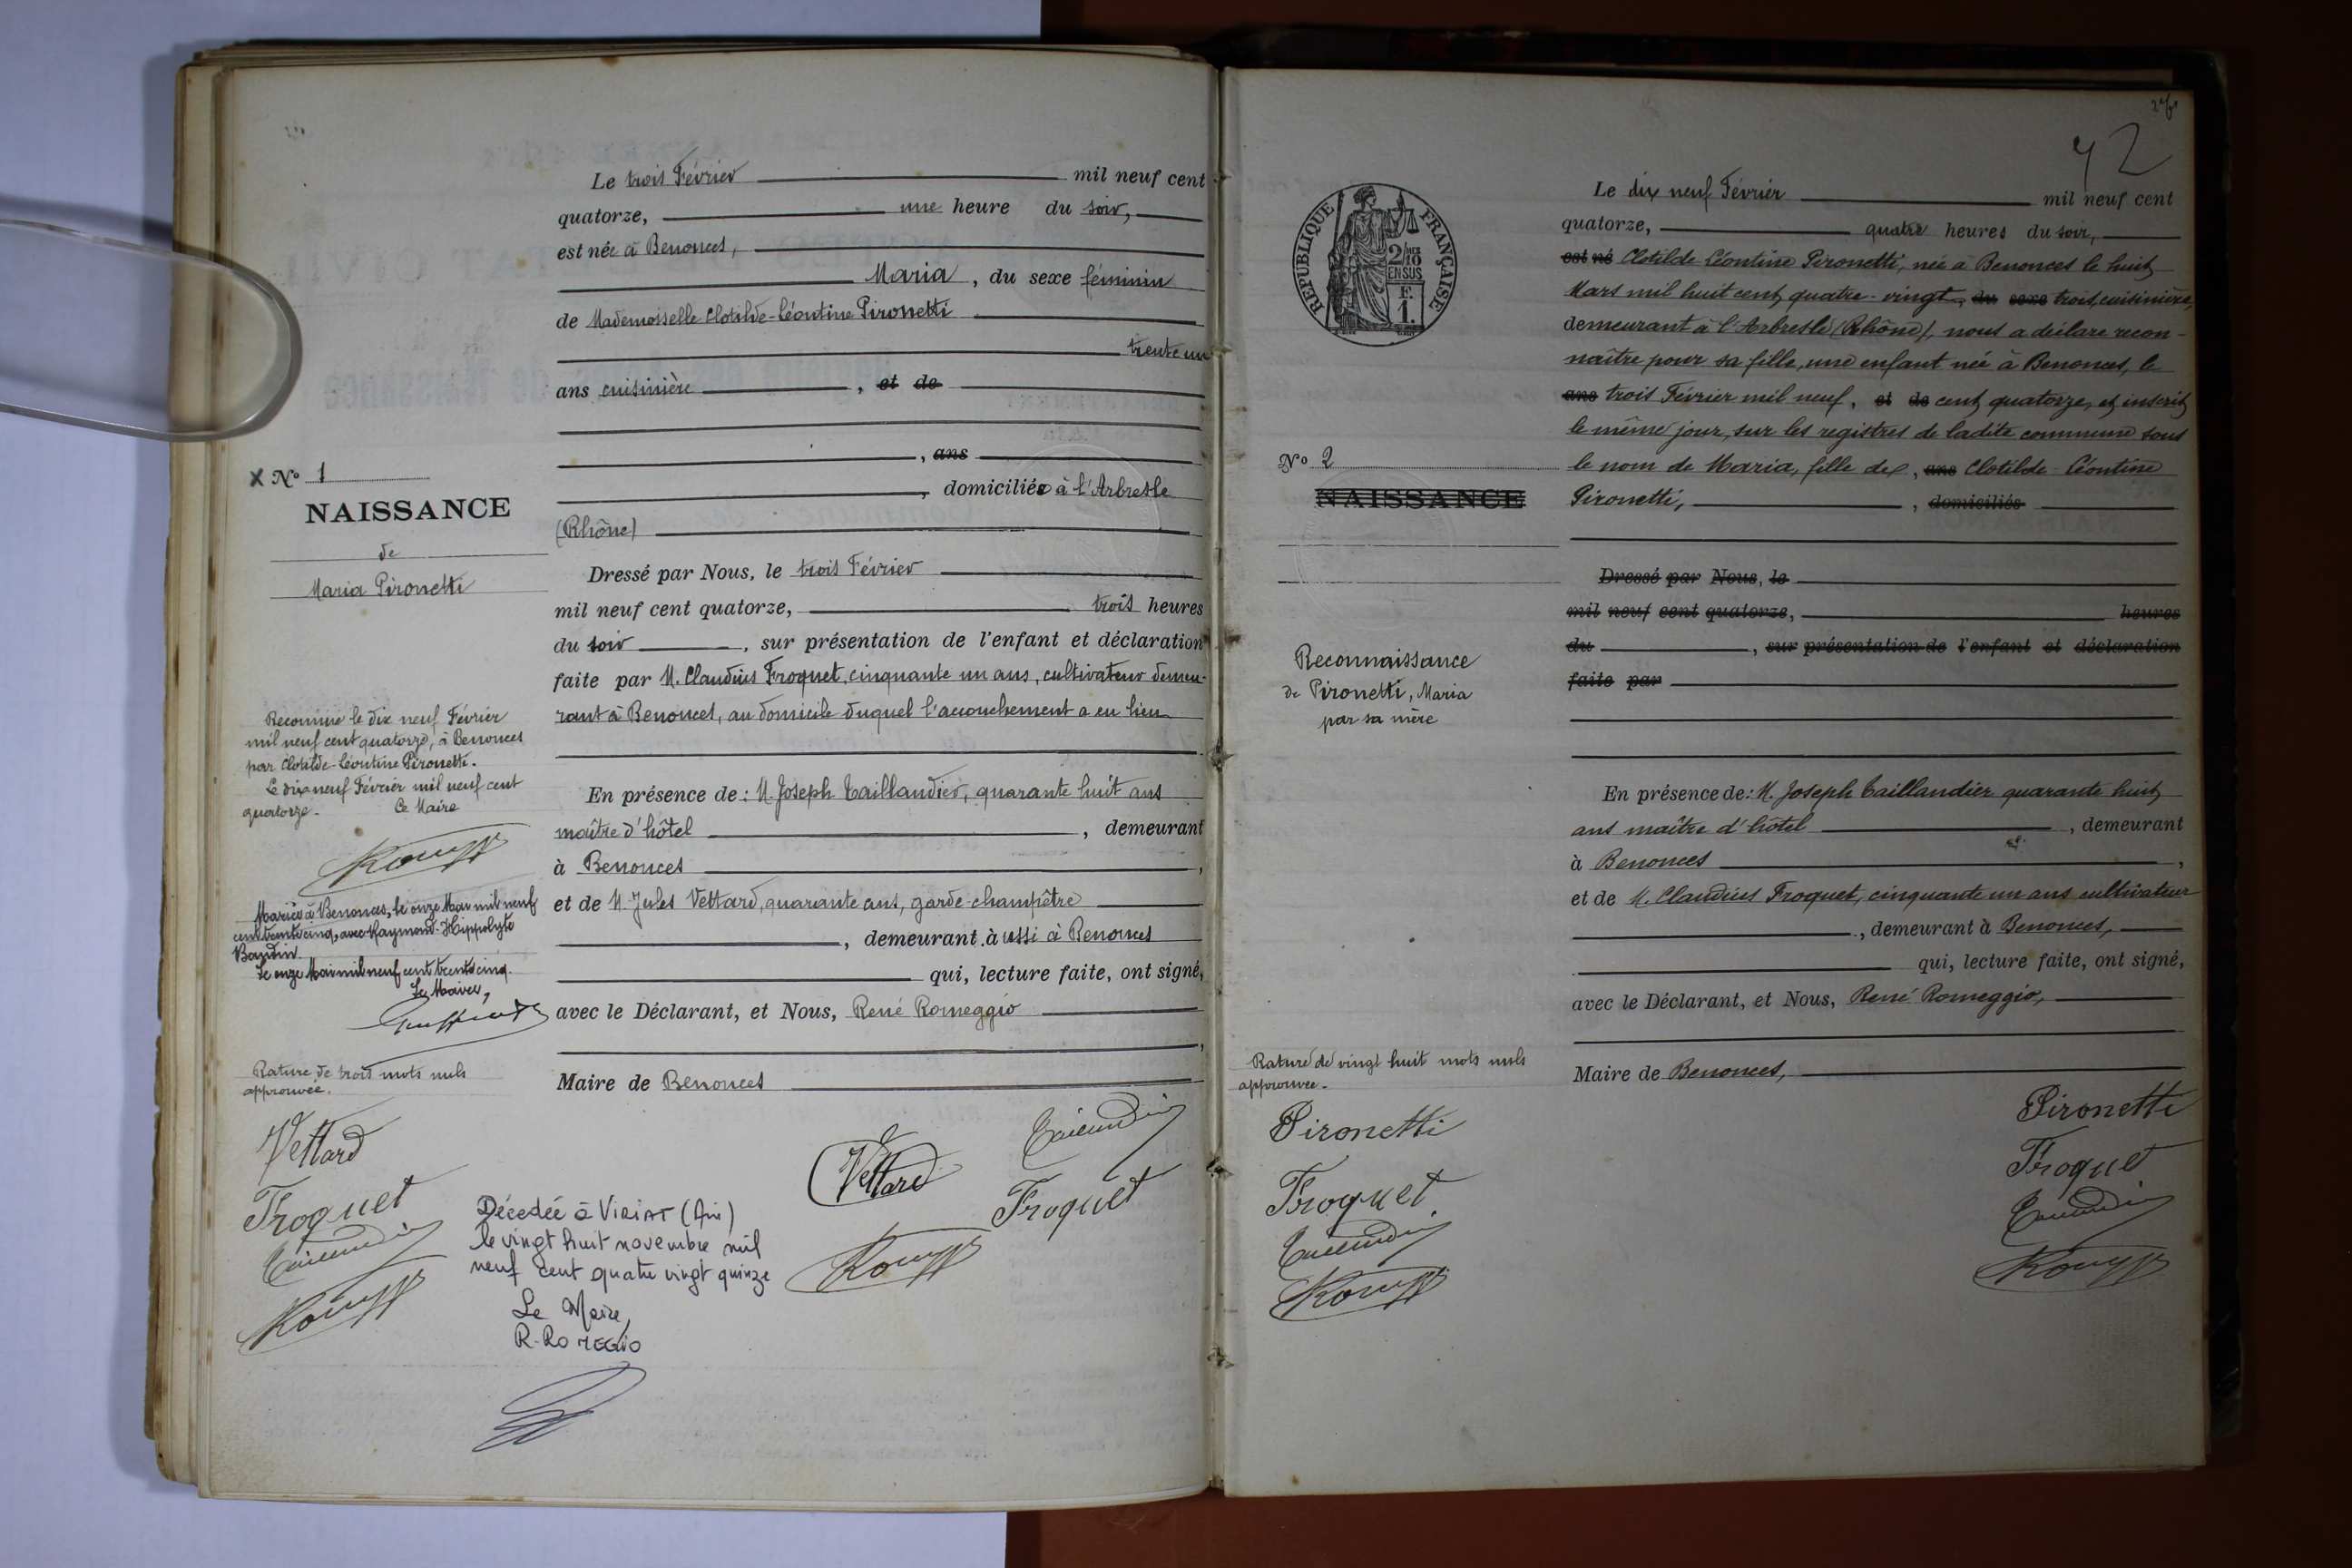 Le trois Février mil neuf cent
quatorze, une heure du soir,
est née à Benonces,
Maria, du sexe féminin
de Mademoiselle Clotilde-Léontine Pironetti
trente un
ans cuisinière, et de
, ans
, domiciliée à l'Arbresle
(Rhône)
Dressé par Nous, le trois Février
mil neuf cent quatorze, trois heures
du soir, sur présentation de l'enfant et déclaration
faite par M. Claudius Froquet, cinquante un ans, cultivateur demeu-
rant à Benonces, au domicile duquel l'accouchement a eu lieu
En présence de : M. Joseph Taillandier, quarante huit ans
maître d'hôtel, demeurant
à Benonces,
et de M. Jules Vettard, quarante ans, garde-champêtre
, demeurant aussi à Benonces
qui, lecture faite, ont signé,
avec le Déclarant, et Nous, René Romeggio
,
Maire de Benonces
X No 1
NAISSANCE
de
Maria Pironetti
Reconnue le dix neuf Février
mil neuf cent quatorze, à Benonces
par Clotilde-Léontine Pironetti.
Le dix neuf Février mil neuf cent
quatorze. Le Maire
Mariée à Benonces, le onze Mai mil neuf
cent trente cinq, avec Raymond-Hippolyte
Baudin.
Le onze Mai mil neuf cent trente cinq.
Le Maire,
Rature de trois mots nuls
approuvée.
Vettard
Froquet
Vettard
Froquet
Décédée à VIRIAT (Ain)
le vingt huit novembre mil
neuf cent quatre vingt quinze
Le Maire,
R. ROMEGGIO
42
REPUBLIQUE FRANÇAISE
2/10
EN SUS
F.
1.
Le dix neuf Février mil neuf cent
quatorze, quatre heures du soir,
est né Clotilde Léontine Pironetti, née à Benonces le huit
Mars mil huit cent quatre-vingt, du sexe trois, cuisinière,
demeurant à l'Arbresle (Rhône), nous a déclare recon-
naître pour sa fille, une enfant née à Benonces, le
ans trois Février mil neuf, et de cent quatorze, et inscrit
le même jour, sur les registres de ladite commune sous
le nom de Maria, fille de, ans Clotilde-Léontine
Pironetti, , domiciliés
Dressé par Nous, le
mil neuf cent quatorze, heures
du , sur présentation de l'enfant et déclaration
faite par
En présence de : M. Joseph Taillandier quarante huit
ans maître d'hôtel, demeurant
à Benonces,
et de M. Claudius Froquet, cinquante un ans cultivateur
, demeurant à Benonces,
qui, lecture faite, ont signé,
avec le Déclarant, et Nous, René Romeggio,
Maire de Benonces,
No 2
NAISSANCE
Reconnaissance
de Pironetti, Maria
par sa mère
Rature de vingt huit mots nuls
approuvée.
Pironetti
Froquet
Pironetti
Froquet